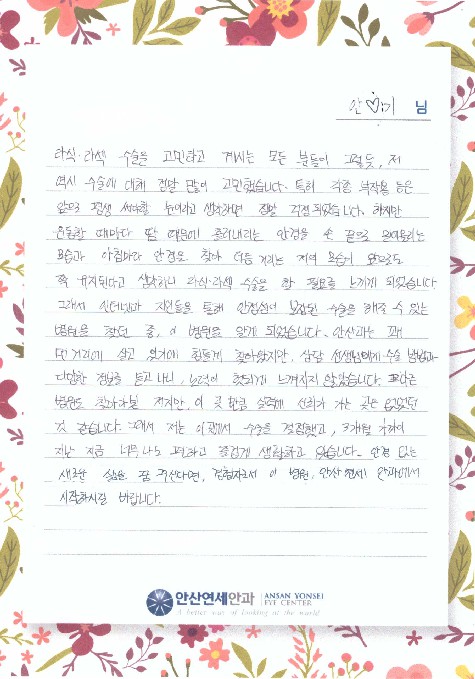 안♡기 님
라식·라섹 수술을 고민하고 계시는 모든 분들이 그렇듯, 저
역시 수술에 대해 정말 많이 고민했습니다. 특히 각종 부작용 등은
앞으로 평생 써야할 눈이라고 생각하면 정말 걱정되었습니다. 하지만
운동할 때마다 땀 때문에 흘러내리는 안경을 손 끝으로 밀어올리는
모습과 아침마다 안경을 찾아 더듬거리는 저의 모습이 앞으로도
쭉 유지된다고 생각하니 라식·라섹 수술을 할 필요를 느끼게 되었습니다
그래서 인터넷과 지인들을 통해 안정성이 보장된 수술을 해줄 수 있는
병원을 찾던 중, 이 병원을 알게 되었습니다. 안산과는 꽤
먼 거리에 살고 있기에 힘들게 찾아왔지만, 상담 선생님에게 수술 방법과
다양한 정보를 듣고 나니, 노력이 헛되게 느껴지지 않았습니다. 또다른
병원도 찾아가봤지만, 이 곳 만큼 실력에 신뢰가 가는 곳은 없었던
것 같습니다. 그래서 저는 이곳에서 수술을 결정했고, 3개월 가까이
지난 지금 너무나도 편하고 즐겁게 생활하고 있습니다. 안경 없는
새로운 삶을 꿈 꾸신다면, 경험자로서 이 병원, 안산 연세 안과에서
시작하시길 바랍니다.
안산연세안과 ANSAN YONSEI EYE CENTER
A better way of looking at the world